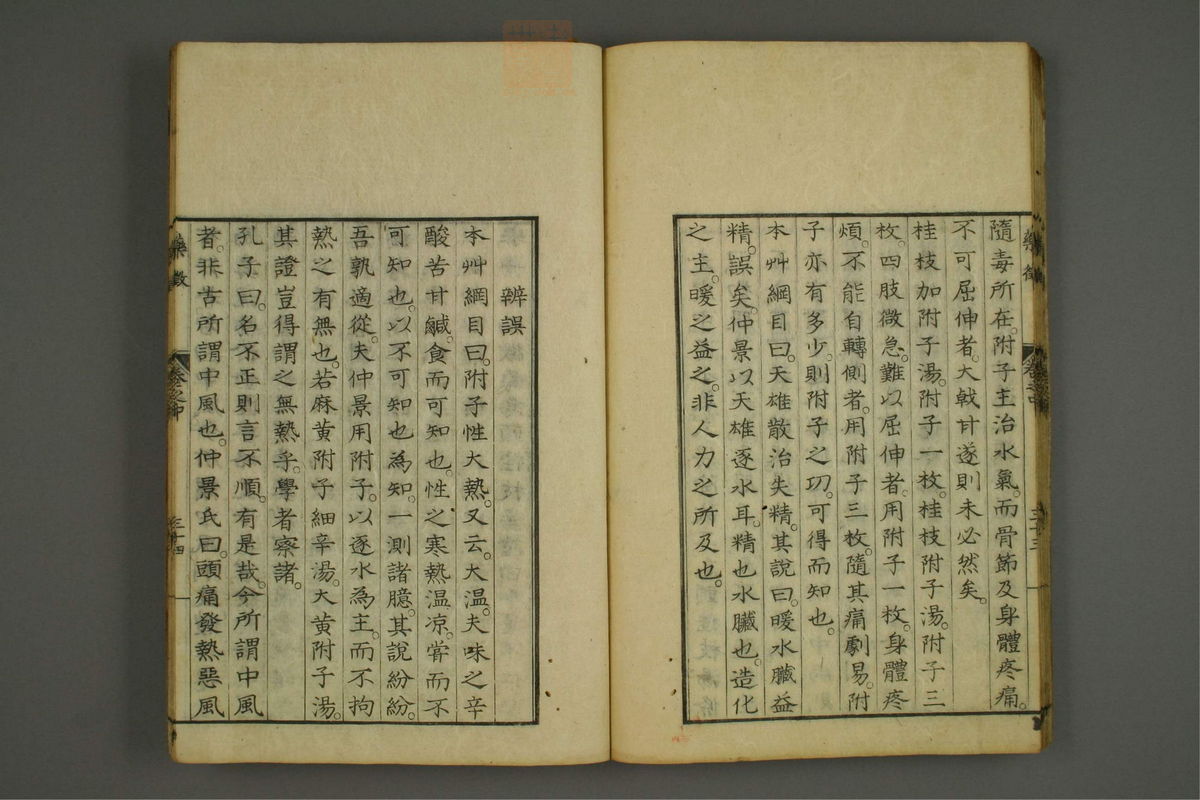 隨毒所在。附子主治水氣。而骨節及身體疼痛。
不可屈伸者。大戟甘遂則未必然矣。
桂枝加附子湯。附子一枚。桂枝附子湯。附子三
枚。四肢微急。難以屈伸者。用附子一枚。身體疼
煩。不能自轉側者。用附子三枚。隨其痛劇易。附
子亦有多少。則附子之功。可得而知也。
本艸綱目曰。天雄散治失精。其說曰暖水臟益
精。誤矣。仲景以天雄逐水耳。精也水臟也。造化
之主。暖之益之。非人力之所及也。
藥徵
卷之中
三十三
辨誤
本艸綱目曰。附子性大熱。又云。大溫。夫味之辛
酸苦甘鹹。食而可知也。性之寒熱温凉。嘗而不
可知也。以不可知也為知。一測諸臆。其說紛紛。
吾孰適從。夫仲景用附子。以逐水為主。而不拘
熱之有無也。若麻黄附子細辛湯。大黄附子湯。
其證豈得謂之無熱乎。學者察諸。
孔子曰。名不正則言不順。有是哉。今所謂中風
者。非古所謂中風也。仲景氏曰。頭痛發熱惡風
藥徵
卷之中
三十四